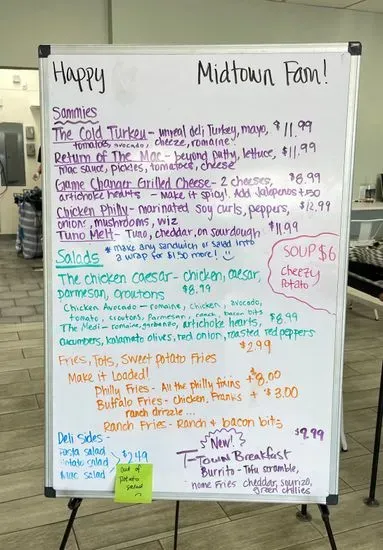 Happy Midtown Fam!
Sammies
The Cold Turkey - unreal deli Turkey, mayo, $11.99
tomatoes, avocado, cheeze, romaine
Return of The Mac - beyond patty, lettuce, $11.99
mac sauce, pickles, tomatoes, cheese
Game Changer Grilled Cheese - 2 cheeses, $8.99
artichoke hearts - make it spicy! Add Jalapenos +.50
Chicken Philly - marinated soy curls, peppers, $12.99
onions, mushrooms, wiz
Tuno Melt - Tuno, cheddar, on sourdough $11.99
* make any sandwich or salad into
a wrap for $1.50 more!
SOUP $6
Cheezy
Potato
Salads
The chicken caesar - chicken, caesar,
parmesan, croutons $8.99
Chicken Avocado - romaine, chicken, avocado,
tomato, croutons, Parmesan, ranch, bacon bits
The Medi - romaine, garbanzo, artichoke hearts, $8.99
cucumbers, kalamata olives, red onion, roasted red peppers
$2.99
Fries, Tots, Sweet Potato Fries
Make it Loaded!
Philly Fries - All the philly fixins + $8.00
Buffalo Fries - chicken, Franks + $3.00
ranch drizzle...
Ranch Fries - Ranch & bacon bits
Deli Sides -
Pasta salad
Potato salad $2.49
Mac salad
out of
potato
salad
New!
T-Town Breakfast $9.99
Burrito - Tofu scramble,
home fries cheddar, soyrizo,
green chilies